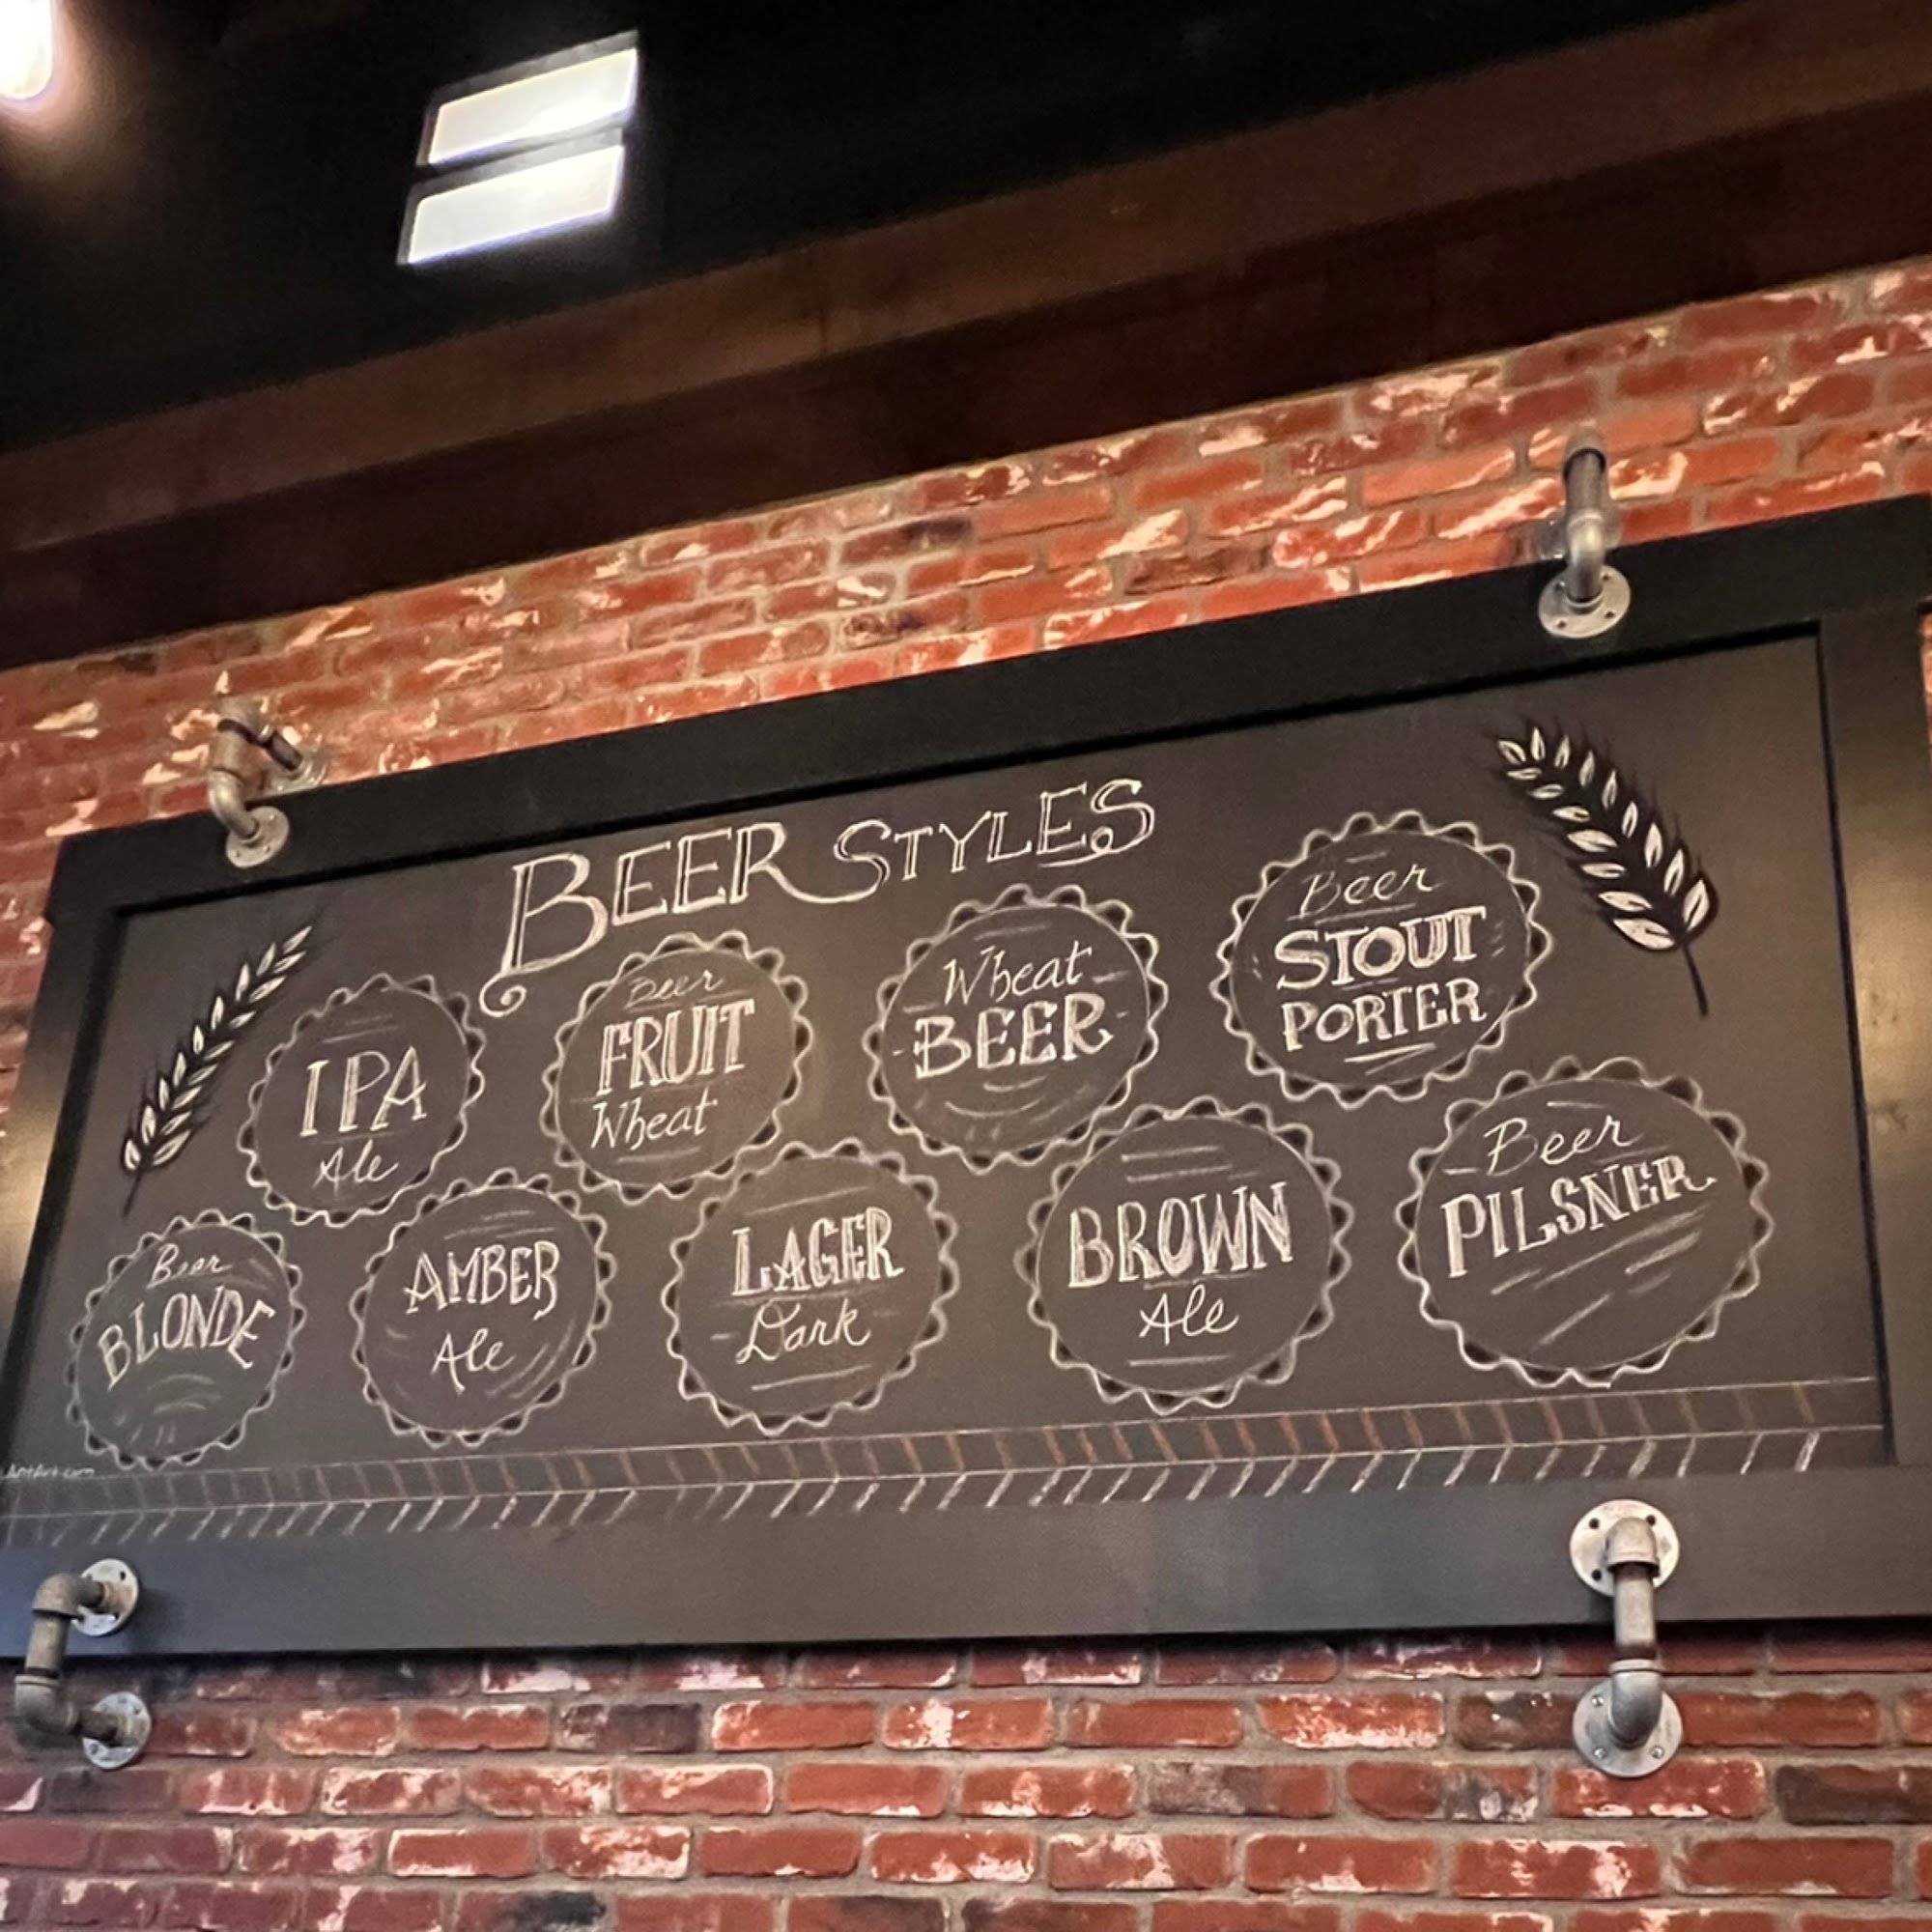 BEER STYLES
IPA
Ale
Beer
FRUIT
Wheat
Wheat
BEER
Beer
STOUT
PORTER
Beer
BLONDE
AMBER
Ale
LAGER
Dark
BROWN
Ale
Beer
PILSNER